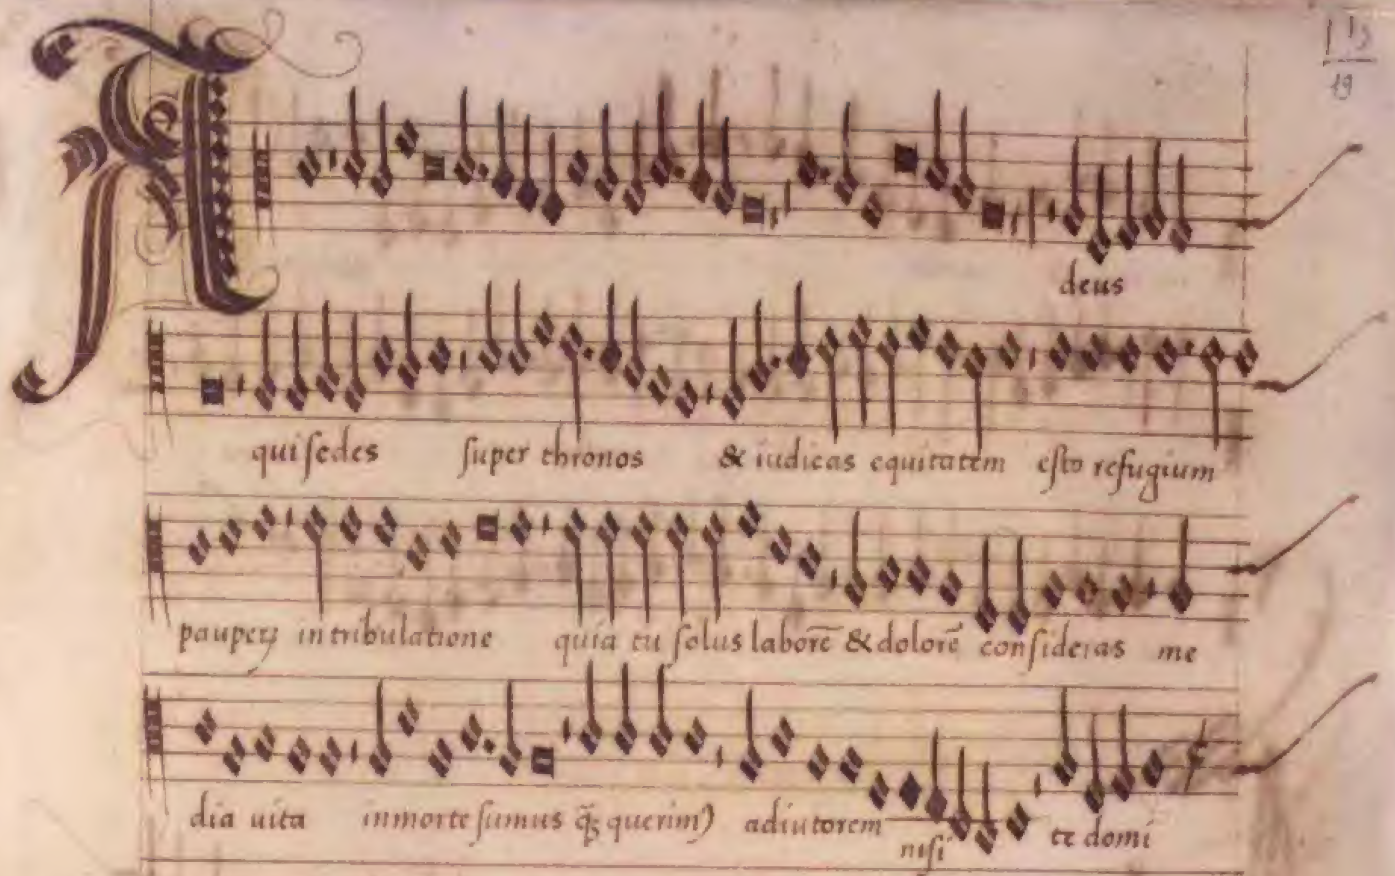 A
deus
qui sedes super thronos & iudicas equitatem esto refugium
in tribulatione quia tu solus laborē & dolorē consideras me
dia uita in morte sumus querim adiutorem
nisi
te domi
19